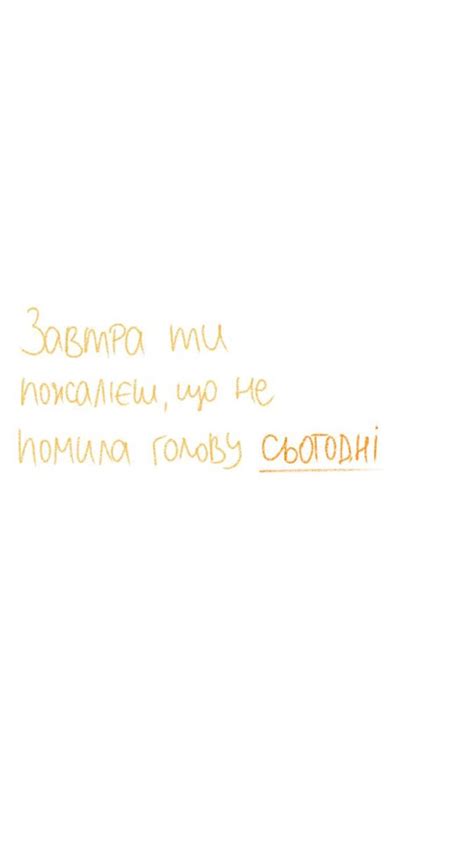 Завтра ти
пожалієш, що не
помила голову сьогодні